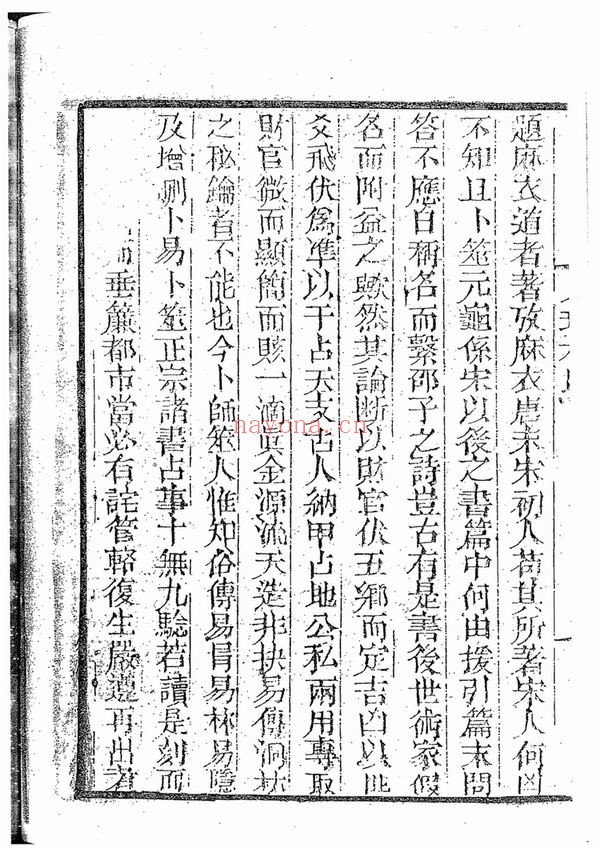 題麻衣道者著攷麻衣唐末宋初人苟其所著宋人何因
不知且卜筮元龜係宋以後之書篇中何由援引篇末問
答不應自稱名而繫邵子之詩豈古有是書後世術家假
名而附益之歟然其論斷以財官伏五鄉而定吉凶以世
爻飛伏爲準以干占天支占人納甲占地公私兩用專取
財官微而顯簡而賅一滴眞金源流天造非抉易傳洞林
之秘鑰者不能也今卜師筮人惟知俗傳易冐易林易隱
及增刪卜易卜筮正宗諸書占事十無九騐若讀是刻而
垂簾都市當必有詫管輅復生嚴遵再出者
nayona.cn